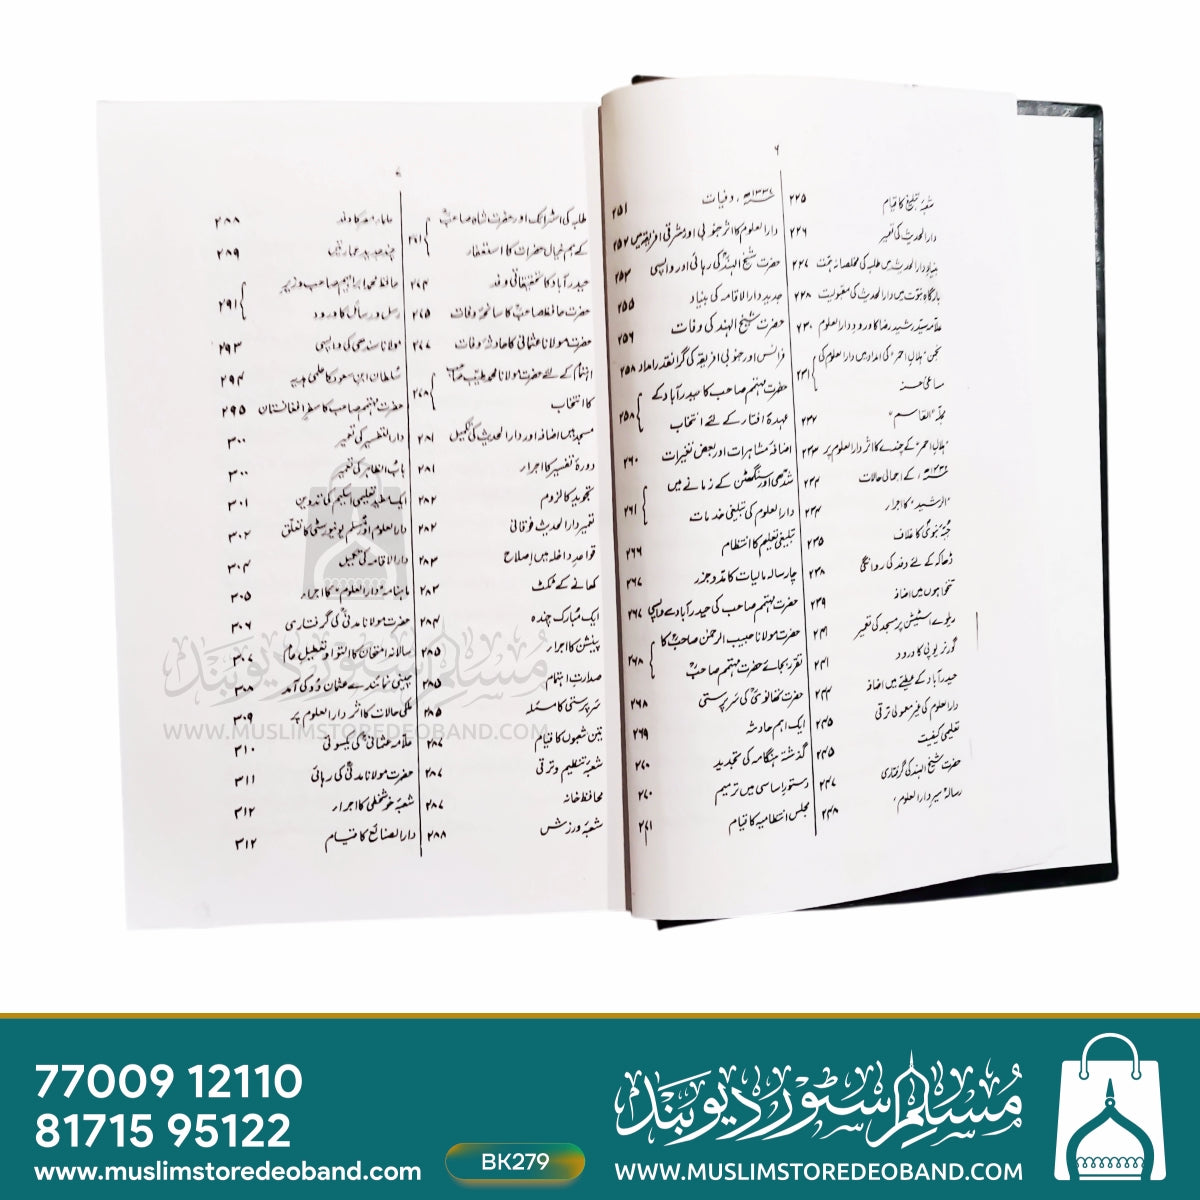 ۶
شعبۂ تبلیغ کا قیام ۲۲۵
دارالحدیث کی تعمیر ۲۲۶
بنیاد دارالحدیث میں طلبہ کی مخلصانہ ہمت ۲۲۷
بارگاہ نبوت میں دارالحدیث کی مقبولیت ۲۲۸
علامہ سید رشید رضا کا ورود دارالعلوم ۲۳۰
انجمن ہلال احمر کی امداد میں دارالعلوم کی
مساعئ حسنہ ۲۳۱
مجلہ "القاسم" ۲۳۲
"ہلال احمر" کے چندے کا اثر دارالعلوم پر ۲۳۳
کے اجمالی حالات ۲۳۴
"الرشید" کا اجراء ۲۳۴
جبۂ نبویؐ کا غلاف ۲۳۵
ڈھاکہ کے لئے وفد کی روانگی ۲۳۸
تنخواہوں میں اضافہ ۲۳۹
ریلوے اسٹیشن پر مسجد کی تعمیر ۲۴۱
گورنر یوپی کا ورود ۲۴۱
حیدرآباد کے عطیئے میں اضافہ ۲۴۴
دارالعلوم کی غیر معمولی ترقی ۲۴۵
تعلیمی کیفیت ۲۴۵
حضرت شیخ الہند کی گرفتاری ۲۴۷
رسالہ سیر دارالعلوم، ۲۴۸
۱۳۳۷ھ، وفیات ۲۵۱
دارالعلوم کا اثر جنوبی اور مشرقی افریقہ میں ۲۵۲
حضرت شیخ الہندؒ کی رہائی اور واپسی ۲۵۳
جدید دارالاقامہ کی بنیاد ۲۵۵
حضرت شیخ الہند کی وفات ۲۵۶
فرانس اور جنوبی افریقہ کی گرانقدر امداد ۲۵۸
حضرت مہتمم صاحب کا حیدرآباد کے
عہدۂ افتار کے لئے انتخاب ۲۵۸
اضافۂ مشاہرات اور بعض تغیرات ۲۶۰
شدھی اور سنگھٹن کے زمانے میں
دارالعلوم کی تبلیغی خدمات ۲۶۱
تبلیغی تعلیم کا انتظام ۲۶۶
چار سالہ مالیات کا مدوجزر ۲۶۷
حضرت مہتمم صاحب کی حیدرآباد سے واپسی ۲۶۷
حضرت مولانا حبیب الرحمٰن صاحبؒ کا
تقرر بجائے حضرت مہتمم صاحبؒ ۲۶۸
حضرت تھانویؒ کی سرپرستی ۲۶۸
ایک اہم حادثہ ۲۶۹
گذشتہ ہنگامہ کی تجدید ۲۷۰
دستور اساسی میں ترمیم ۲۷۰
مجلس انتظامیہ کا قیام ۲۷۱
طلبہ کی اسٹرائک اور حضرت شاہ صاحبؒ
کے ہم خیال حضرات کا استعفار
حیدرآباد کا تحقیقاتی وفد ۲۷۴
حضرت حافظ صاحبؒ کا سانحۂ وفات ۲۷۵
حضرت مولانا عثمانی کا حادثۂ وفات ۲۷۷
اہتمام کے لئے حضرت مولانا محمد طیب صاحب
کا انتخاب ۲۷۸
مسجد میں اضافہ اور دارالحدیث کی تکمیل ۲۸۱
دورۂ تفسیر کا اجراء ۲۸۱
تجوید کا لزوم ۲۸۲
تعمیر دارالحدیث فوقانی ۲۸۲
قواعد داخلہ میں اصلاح ۲۸۳
کھانے کے ٹکٹ ۲۸۳
ایک مبارک چندہ ۲۸۴
پنشن کا اجراء ۲۸۵
صدارت اہتمام ۲۸۵
سرپرستی کا مسئلہ ۲۸۵
تین شعبوں کا قیام ۲۸۷
شعبۂ تنظیم و ترقی ۲۸۷
محافظ خانہ ۲۸۷
شعبۂ ورزش ۲۸۸
علمائے مصر کا وفد ۲۸۸
چند جدید عمارتیں ۲۸۹
حافظ محمد ابراہیم صاحب وزیر
رسل و رسائل کا ورود ۲۹۱
مولانا سندھی کی واپسی ۲۹۳
سلطان ابن سعود کا علمی ہدیہ ۲۹۴
حضرت مہتمم صاحب کا سفر افغانستان ۲۹۵
دارالتفسیر کی تعمیر ۳۰۰
باب الظاہر کی تعمیر ۳۰۰
ایک مفید تعلیمی اسکیم کی تدوین ۳۰۱
دارالعلوم اور مسلم یونیورسٹی کا تعلق ۳۰۲
دارالاقامہ کی تکمیل ۳۰۴
ماہنامہ "دارالعلوم" کا اجراء ۳۰۵
حضرت مولانا مدنیؒ کی گرفتاری ۳۰۶
سالانہ امتحان کا التوا و تعطیل عام ۳۰۷
چینی نمائندے عثمان وو کی آمد ۳۰۸
ملکی حالات کا اثر دارالعلوم پر ۳۰۹
علامہ عثمانیؒ کی یکسوئی ۳۱۰
حضرت مولانا مدنیؒ کی رہائی ۳۱۱
شعبۂ خوشخطی کا اجراء ۳۱۲
دارالصنائع کا قیام ۳۱۲
مسلم سٹور دیوبند
WWW.MUSLIMSTOREDEOBAND.COM
77009 12110
81715 95122
www.muslimstoredeoband.com
BK279
مسلم سٹور دیوبند
WWW.MUSLIMSTOREDEOBAND.COM